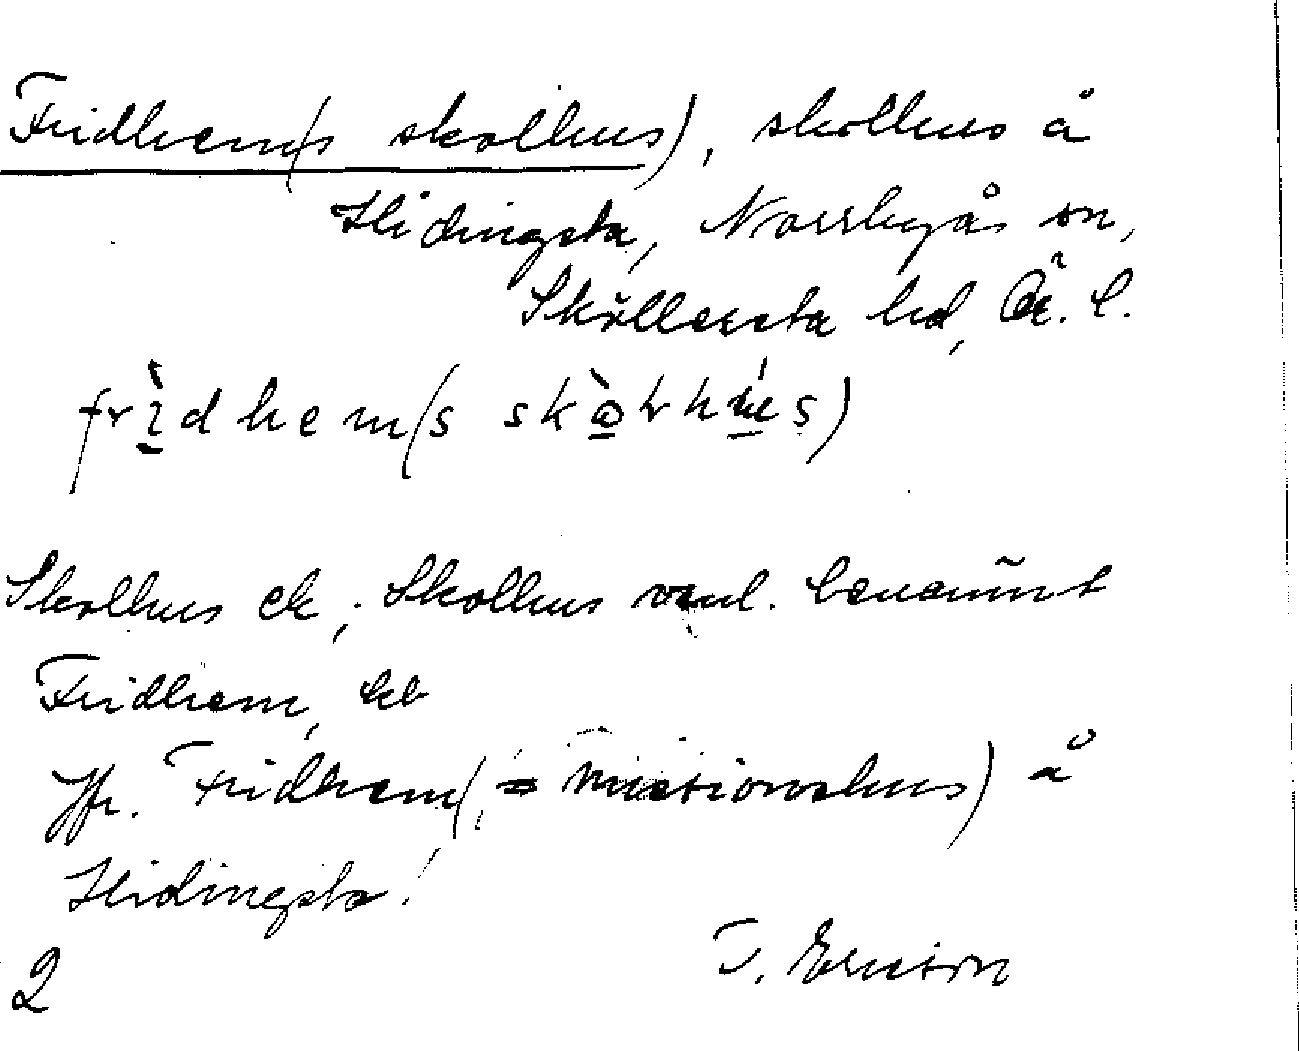 Fridhem(s skolhus), skolhus å
Hidingsta, Norrbyås sn,
Sköllersta hd, Ör. l.
fridhem(s skolhus)
Skolhus ek; Skolhus vanl. benämnt
Fridhem,
Jfr. Fridhem (= missionshus) å
Hidingsta!
T. Ericson
2